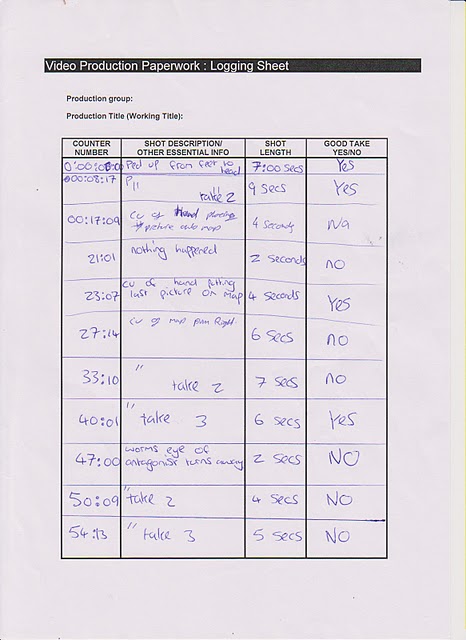 Video Production Paperwork : Logging Sheet
Production group:
Production Title (Working Title):
COUNTER NUMBER SHOT DESCRIPTION/ OTHER ESSENTIAL INFO SHOT LENGTH GOOD TAKE YES/NO
0:00:00:00 Ped up from feet to head 7:00 secs Yes
00:08:17 " take 2 9 secs Yes
00:17:09 cu of hand placing picture onto map 4 seconds No
21:01 nothing happened 2 seconds no
23:07 cu of hand putting last picture on map 4 seconds Yes
27:14 cu of map pan Right 6 secs no
33:10 " take 2 7 secs no
40:01 " take 3 6 secs Yes
47:00 worms eye of antagonist turns away 2 secs NO
50:09 " take 2 4 secs NO
54:13 " take 3 5 secs NO